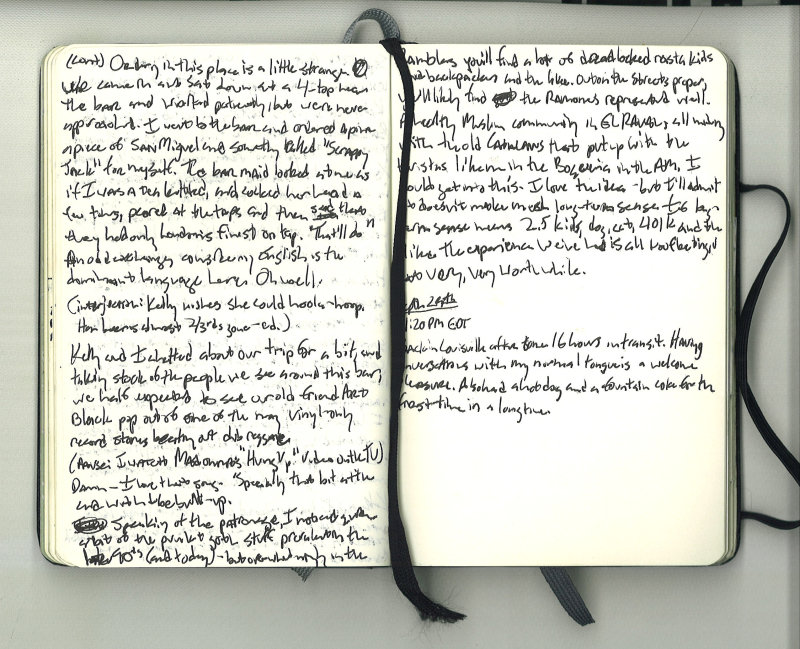 (cont) Ordering in this place is a little strange.
We came in and sat down at a 4-top near
the bar and waited patiently, but were never
approached. I went to the bar and ordered a
a piece of San Miguel and something called "Scrappy
Jack" for myself. The bar maid looked at me as
if I was a and cocked her head a
few times, peered at the taps and then said that
they had only finest on tap. "That'll do"
An odd exchange considering English is the
dominant language here. Oh well.
(interjection: Kelly wishes she could hoola-hoop.
Her is almost 2/3rds gone -ed.)
Kelly and I chatted about our trip for a bit, and
taking stock of the people we see around this bar,
we half expected to see our old friend Art
Black pop out of one of the many vinyl-only
record stores out dub reggae
(Pause: I watch Madonna's "Hung Up" video with TV)
Damn - I love that song. 'Specially that bit at the
end with the build-up.
Speaking of the patronage, I noticed quite
a bit of the punk & goth stuff prevalent in the
90's (and today) - but in the
Ramblas you'll find a lot of dreadlocked rasta kids
and backpackers and the like. Out on the streets proper,
you'll likely find the Ramones represented well.
A healthy Muslim community in EL RAVAL, all mixing
with the old Catalans that put up with the
tourists like me in the Boqueria in the AM, I
could get into this. I love the idea - but I'll admit
it doesn't make much long-term sense if long-
term sense means 2.5 kids, dog, cat, 401k and the
like. The experience we've had is all worth it
very, very worthwhile.
1:20 PM EDT
Back in Louisville after some 16 hours in transit. Having
conversations with my normal tongue is a welcome
pleasure. Also had a hot dog and a fountain coke for the
first time in a long time.